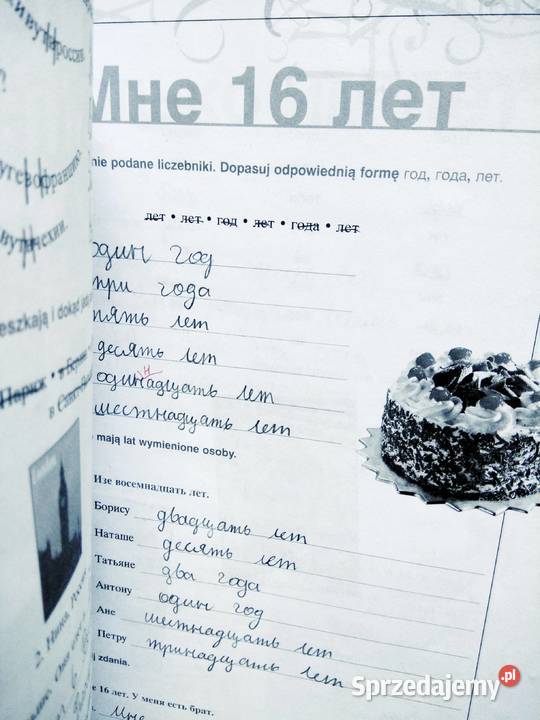 Мне 16 лет
nie podane liczebniki. Dopasuj odpowiednią formę год, года, лет.
лет • лет • год • лет • года • лет
один год
три года
пять лет
десять лет
н
одинадцать лет
шестнадцать лет
mają lat wymienione osoby.
Изе восемнадцать лет.
Борису двадцать лет
Наташе десять лет
Татьяне два года
Антону один год
Ане шетнадцать лет
Петру тринадцать лет
zdania.
16 лет. У меня есть брат.
Мне
eszkają i dokąd
Париж •
в
Sprzedajemy.pl